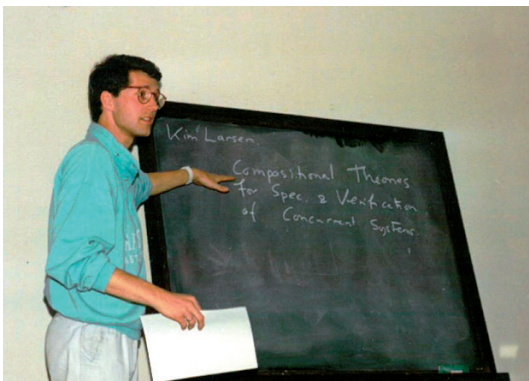 Kim Larsen
Compositional Theories
for Spec. & Verification
of Concurrent Systems.